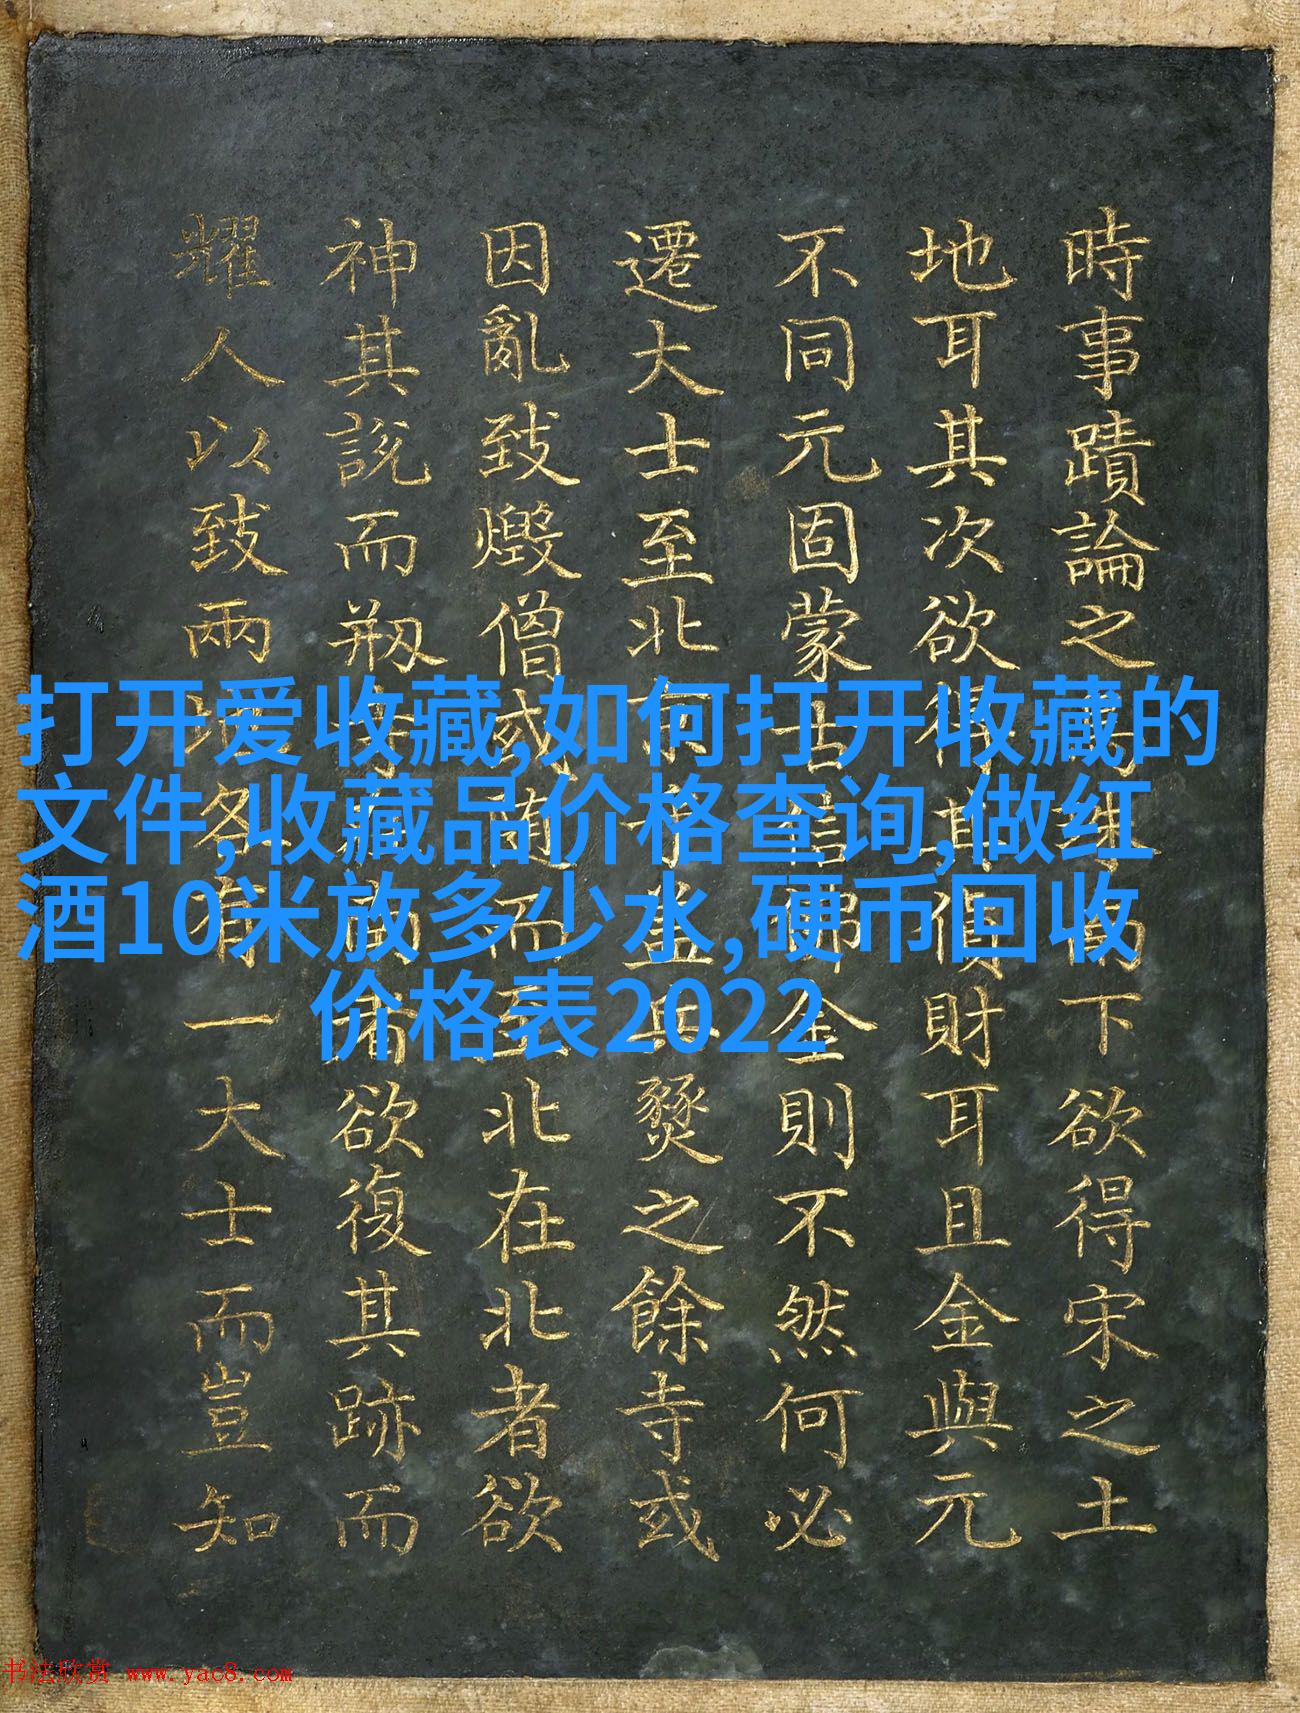 打开爱收藏,如何打开收藏的
文件,收藏品价格查询,做红
酒10米放多少水,硬币回收
价格表2022
時事蹟論之下欲得宋之土
地耳其次欲得其財耳且金與元
不同元固蒙古信佛金則不然何必
遷大士至北京燹之餘寺或
因亂致燬僧或随而至北在北者欲
神其説而剏寺者欲復其跡而
耀人以致兩地各有一大士而豈知
书法欣赏 www.yac8.com